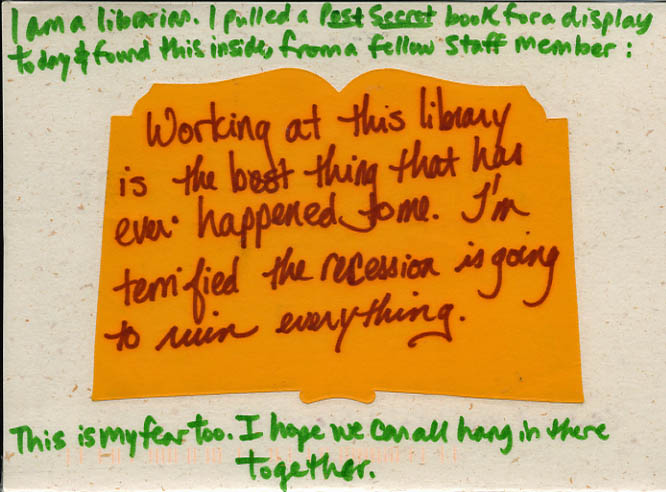 I am a librarian. I pulled a Post Secret book for a display
today & found this inside, from a fellow Staff member:
Working at this library
is the best thing that has
ever happened to me. I'm
terrified the recession is going
to ruin everything.
This is my fear too. I hope we can all hang in there
together.